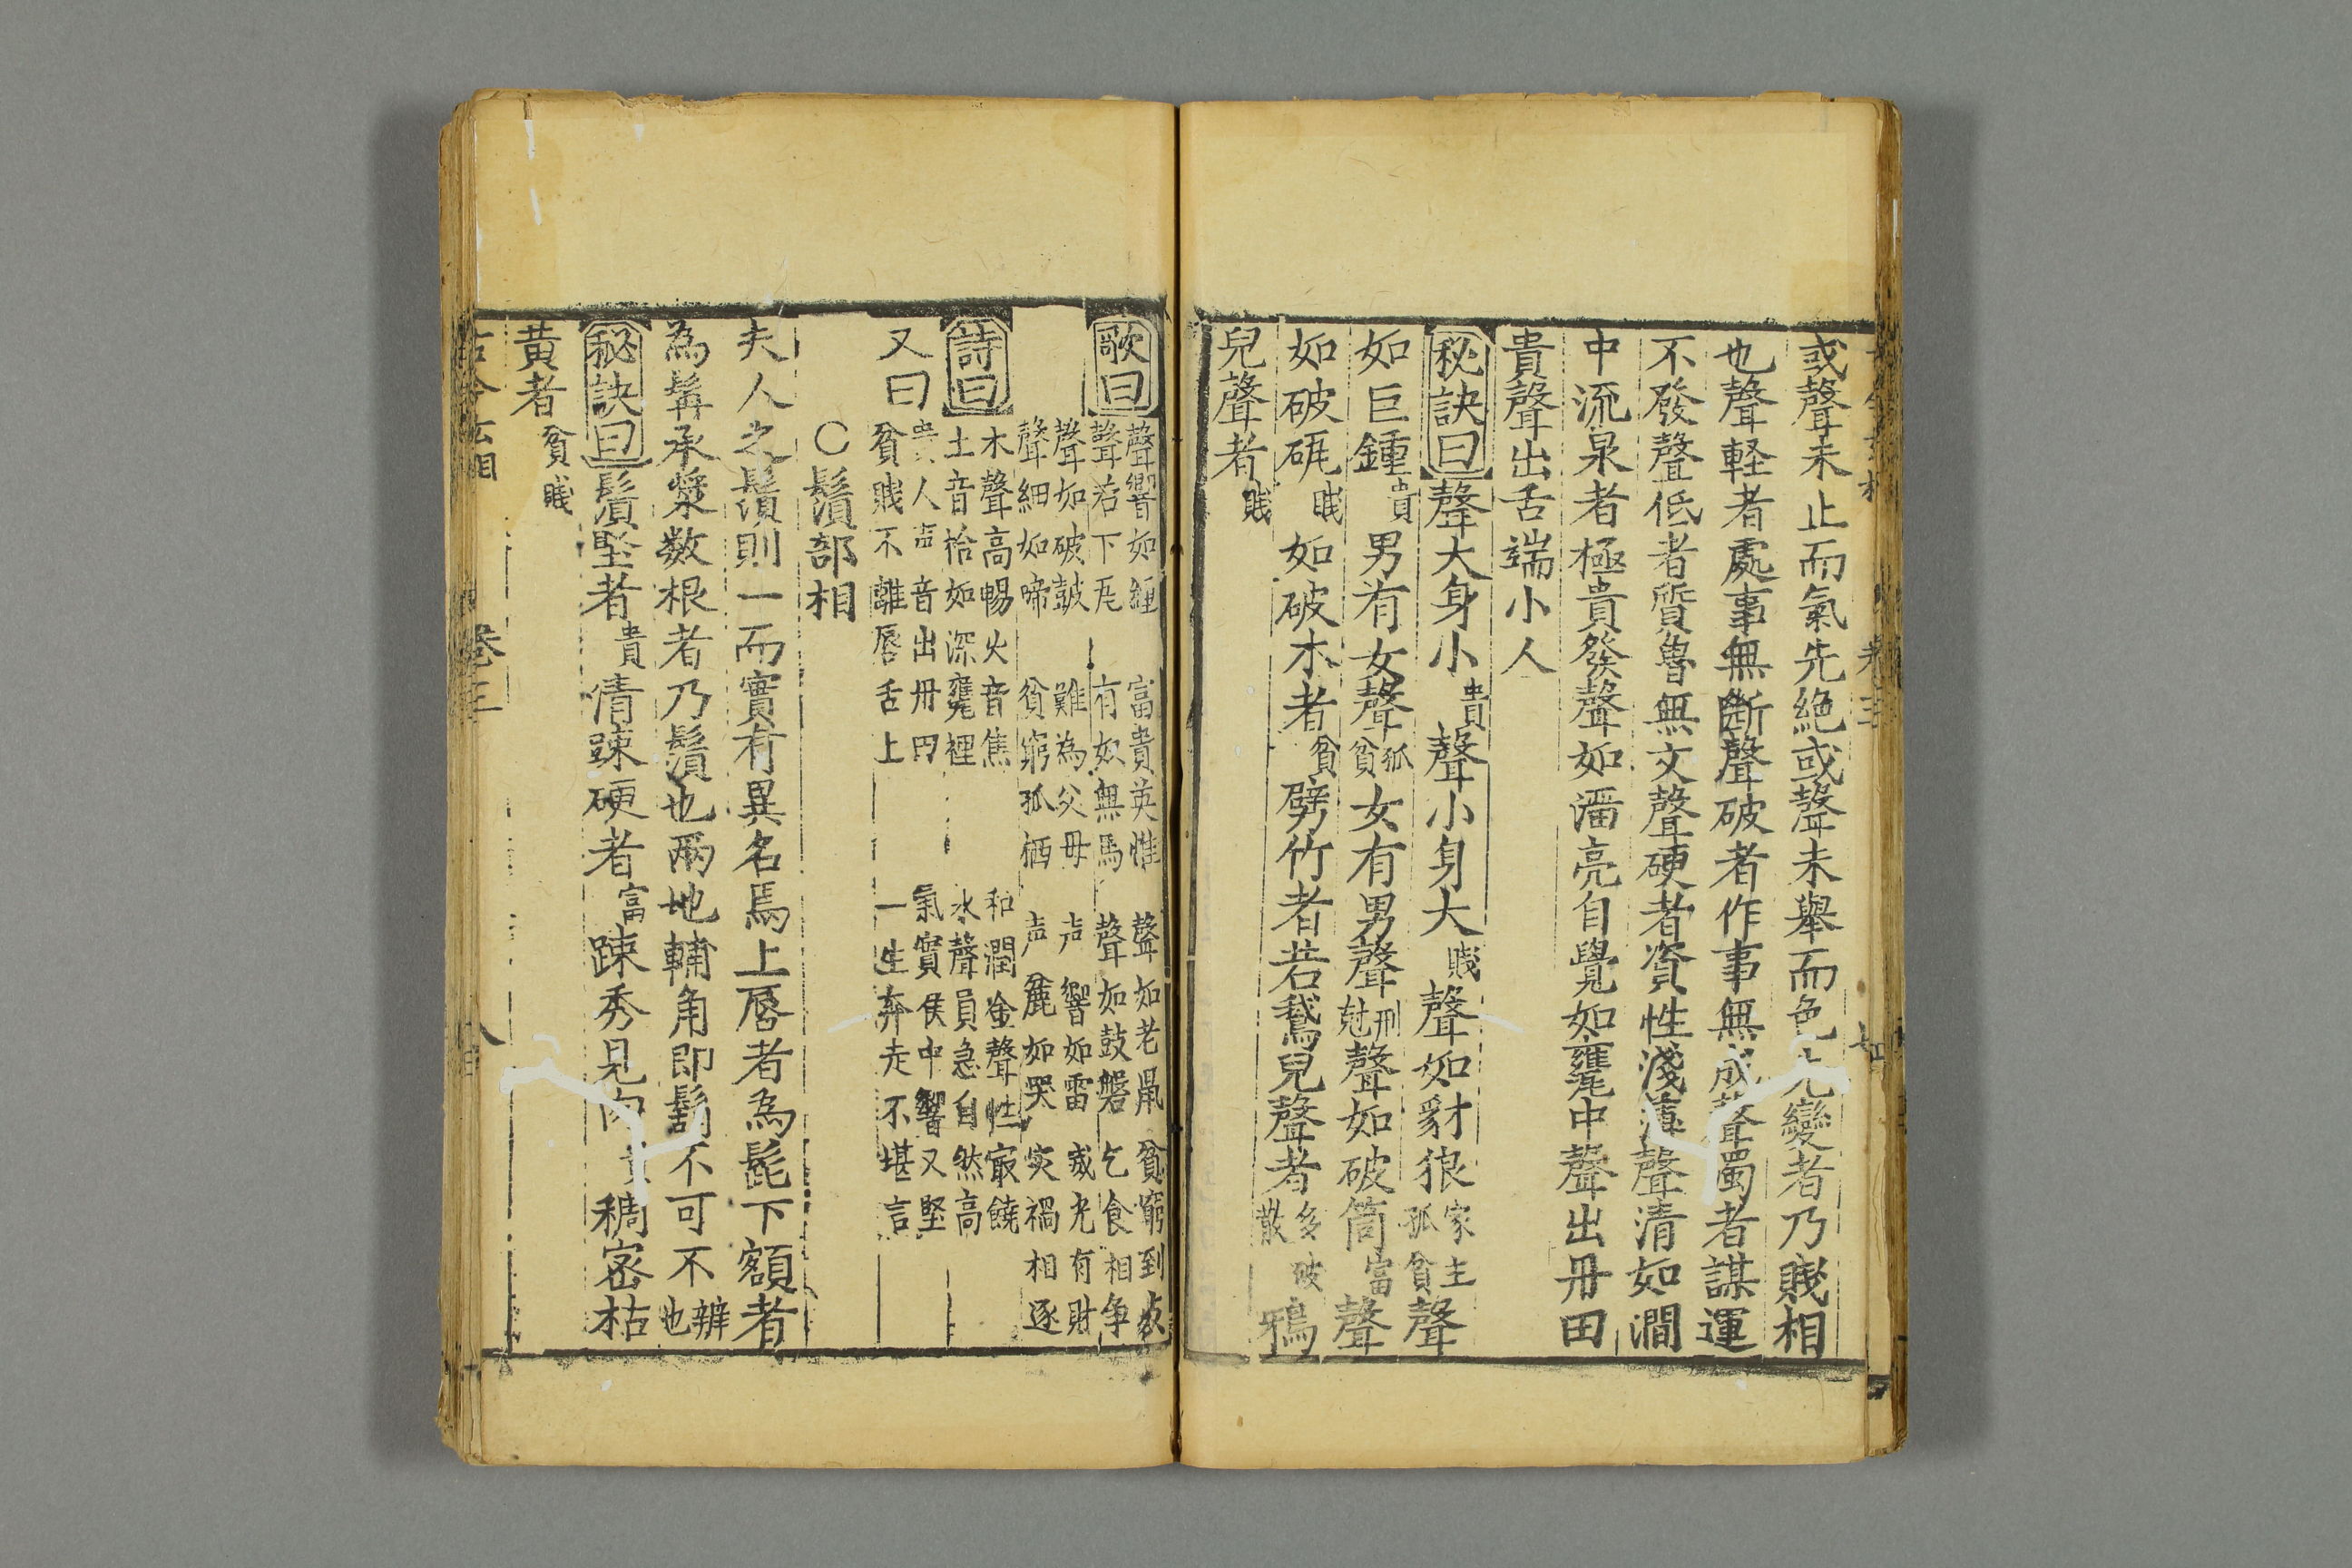 或聲未止而氣先絶或聲未舉而色先變者乃賤相
也聲軽者處事無断聲破者作事無成聲濁者謀運
不發聲低者質魯無文聲硬者資性淺薄聲清如澗
中流泉者極貴發聲如潘亮自覺如甕中聲出丹田
貴聲出舌端小人
秘訣曰聲大身小貴聲小身大賤聲如豺狼家主孤貧聲
如巨鍾貴男有女聲孤貧女有男聲刑尅聲如破筒富聲
如破砙賤如破木者貧劈竹者若鵞兒聲者多破散鴉
兒聲者賤
歌曰
聲響如鍾 富貴英惟 聲如老鼠 貧窮到
聲若下瓦 有奴無馬 聲如鼓磐 乞食相争
聲如破鼓 難為父母 声響如雷 威光有財
聲細如啼 貧窮孤栖 声麄如哭 灾禍相逐
詩曰
木聲高暢火音焦 和潤金聲性㝡饒
土音恰如深甕裡 水聲員急自然高
又曰
貴人声音出丹田 氣實侯中響又堅
貧賎不離唇舌上 一生弃走不堪言
○鬚部相
夫人之鬚則一而實有異名焉上唇者為髭下額者
為髯承漿数根者乃鬚也兩地輔角即鬍不可不辨也
秘訣曰鬚堅者貴清踈硬者富踈秀見肉貴稠宻枯
黄者貧賎
古今玄相 卷三 八百